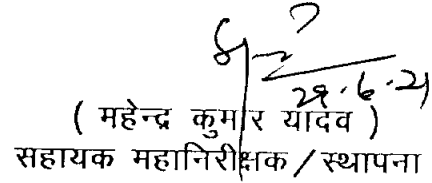 29.6.21
( महेन्द्र कुमार यादव )
सहायक महानिरीक्षक / स्थापना